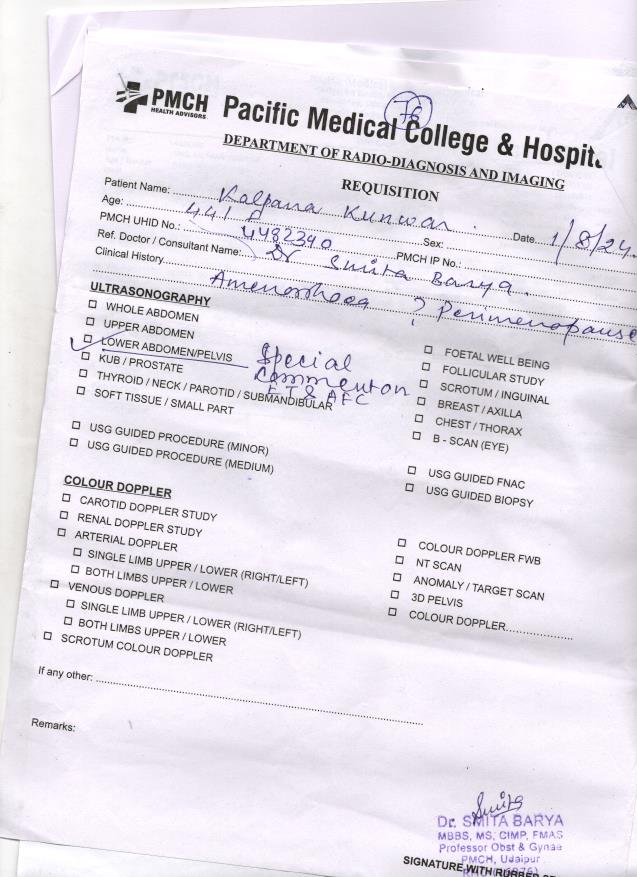 76
PMCH
HEALTH ADVISORS
Pacific Medical College & Hospit
DEPARTMENT OF RADIO-DIAGNOSIS AND IMAGING
REQUISITION
Patient Name: Kalpana Kunwar. Date 1/8/24.
Age: 44/ F Sex:
PMCH UHID No.: 4482390 PMCH IP No.:
Ref. Doctor / Consultant Name: Dr Smita Barya.
Clinical History Amenorrhoea ? Perimenopause
ULTRASONOGRAPHY
WHOLE ABDOMEN
UPPER ABDOMEN
LOWER ABDOMEN/PELVIS Special
KUB / PROSTATE Comment on
THYROID / NECK / PAROTID / SUBMANDIBULAR ET & AFC
SOFT TISSUE / SMALL PART
USG GUIDED PROCEDURE (MINOR)
USG GUIDED PROCEDURE (MEDIUM)
FOETAL WELL BEING
FOLLICULAR STUDY
SCROTUM / INGUINAL
BREAST / AXILLA
CHEST / THORAX
B - SCAN (EYE)
USG GUIDED FNAC
USG GUIDED BIOPSY
COLOUR DOPPLER
CAROTID DOPPLER STUDY
RENAL DOPPLER STUDY
ARTERIAL DOPPLER
SINGLE LIMB UPPER / LOWER (RIGHT/LEFT)
BOTH LIMBS UPPER / LOWER
VENOUS DOPPLER
SINGLE LIMB UPPER / LOWER (RIGHT/LEFT)
BOTH LIMBS UPPER / LOWER
SCROTUM COLOUR DOPPLER
COLOUR DOPPLER FWB
NT SCAN
ANOMALY / TARGET SCAN
3D PELVIS
COLOUR DOPPLER
If any other:
Remarks:
Smita
Dr. SMITA BARYA
MBBS, MS, CIMP, FMAS
Professor Obst & Gynae
PMCH, Udaipur
SIGNATURE WITH RUBBER